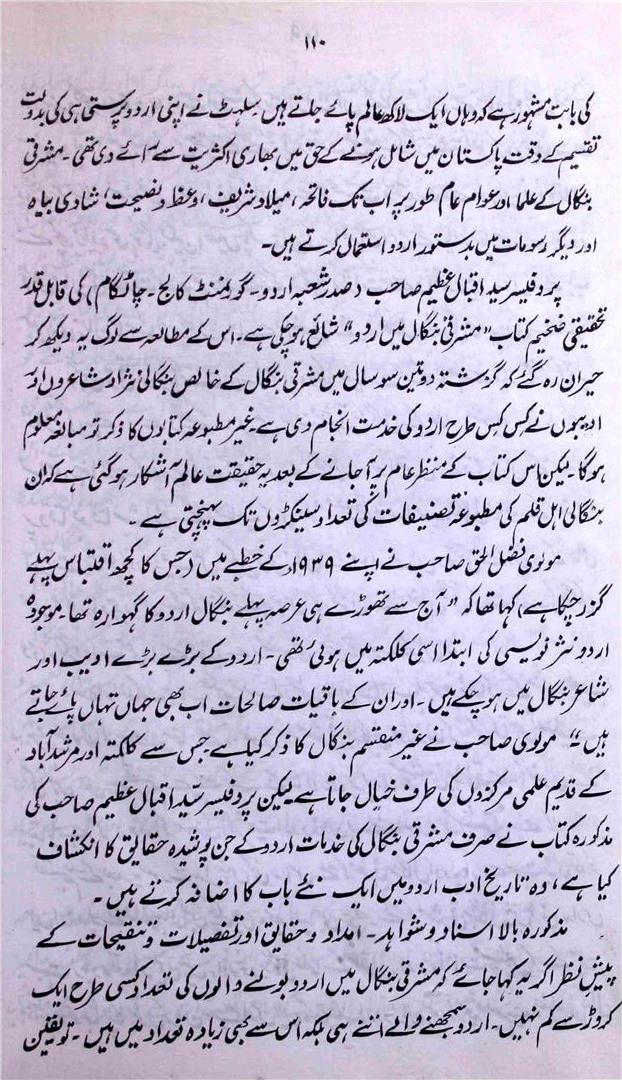 ۱۱۰
کی بابت مشہور ہے کہ وہاں ایک لاکھ عالم پائے جاتے ہیں۔ سلہٹ نے اپنی اردو پرستی ہی کی بدولت
تقسیم کے وقت پاکستان میں شامل ہونے کے حق میں بھاری اکثریت سے رائے دی تھی۔ مشرقی
بنگال کے علما اور عوام عام طور پر اب تک فاتحہ، میلاد شریف، وعظ و نصیحت، شادی بیاہ
اور دیگر رسومات میں بدستور اردو استعمال کرتے ہیں۔
پروفیسر سید اقبال عظیم صاحب (صدر شعبہ اردو۔ گورنمنٹ کالج۔ چاٹگام) کی قابل قدر
تحقیقی ضخیم کتاب "مشرقی بنگال میں اردو" شائع ہو چکی ہے۔ اس کے مطالعہ سے لوگ یہ دیکھ کر
حیران رہ گئے کہ گزشتہ دو تین سو سال میں مشرقی بنگال کے خالص بنگالی نژاد شاعروں اور
ادیبوں نے کس کس طرح اردو کی خدمت انجام دی ہے۔ غیر مطبوعہ کتابوں کا ذکر تو مبالغہ معلوم
ہوگا۔ لیکن اس کتاب کے منظر عام پر آ جانے کے بعد یہ حقیقت عالم آشکار ہو گئی ہے کہ ان
بنگالی اہل قلم کی مطبوعہ تصنیفات کی تعداد سینکڑوں تک پہنچتی ہے۔
مولوی فضل الحق صاحب نے اپنے ۱۹۳۹ء کے خطبے میں (جس کا کچھ اقتباس پہلے
گزر چکا ہے) کہا تھا کہ "آج سے تھوڑے ہی عرصہ پہلے بنگال اردو کا گہوارہ تھا۔ موجودہ
اردو نثر نویسی کی ابتدا اسی کلکتہ میں ہوئی تھی۔ اردو کے بڑے بڑے ادیب اور
شاعر بنگال میں ہو چکے ہیں۔ اور ان کے باقیات صالحات اب بھی جہاں تہاں پائے جاتے
ہیں"۔ مولوی صاحب نے غیر منقسم بنگال کا ذکر کیا ہے جس سے کلکتہ اور مرشد آباد
کے قدیم علمی مرکزوں کی طرف خیال جاتا ہے لیکن پروفیسر سید اقبال عظیم صاحب کی
مذکورہ کتاب نے صرف مشرقی بنگال کی خدمات اردو کے جن پوشیدہ حقایق کا انکشاف
کیا ہے، وہ تاریخ ادب اردو میں ایک نئے باب کا اضافہ کرتے ہیں۔
مذکورہ بالا اسناد و شواہد۔ امداد و حقایق اور تفصیلات و تنقیحات کے
پیش نظر اگر یہ کہا جائے کہ مشرقی بنگال میں اردو بولنے والوں کی تعداد کسی طرح ایک
کروڑ سے کم نہیں۔ اردو سمجھنے والے اتنے ہی بلکہ اس سے بھی زیادہ تعداد میں ہیں۔ تو یقین